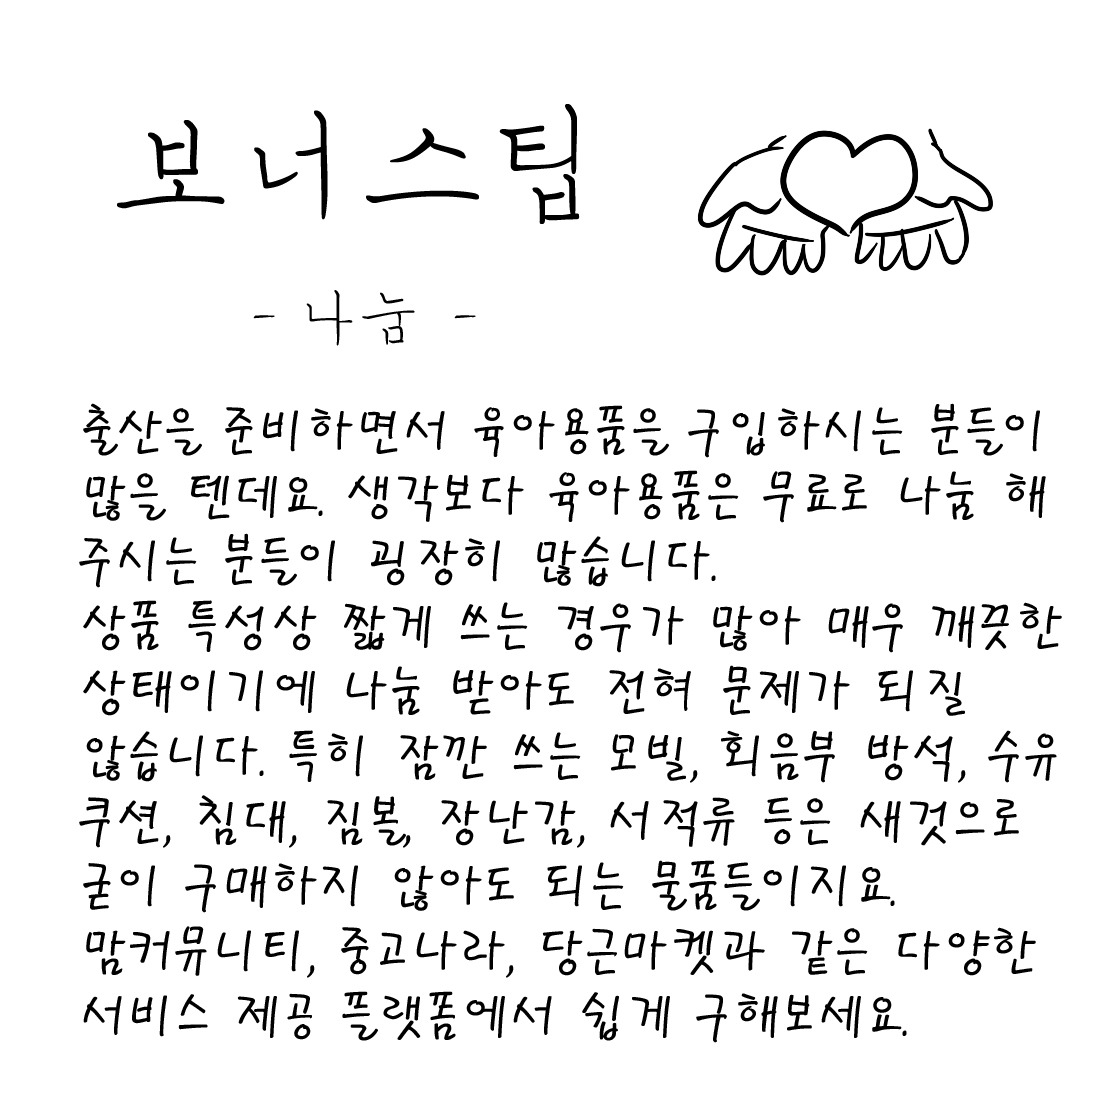 보너스팁
- 나눔 -
출산을 준비하면서 육아용품을 구입하시는 분들이
많을 텐데요. 생각보다 육아용품은 무료로 나눔 해
주시는 분들이 굉장히 많습니다.
상품 특성상 짧게 쓰는 경우가 많아 매우 깨끗한
상태이기에 나눔 받아도 전혀 문제가 되질
않습니다. 특히 잠깐 쓰는 모빌, 회음부 방석, 수유
쿠션, 침대, 짐볼, 장난감, 서적류 등은 새것으로
굳이 구매하지 않아도 되는 물품들이지요.
맘커뮤니티, 중고나라, 당근마켓과 같은 다양한
서비스 제공 플랫폼에서 쉽게 구해보세요.